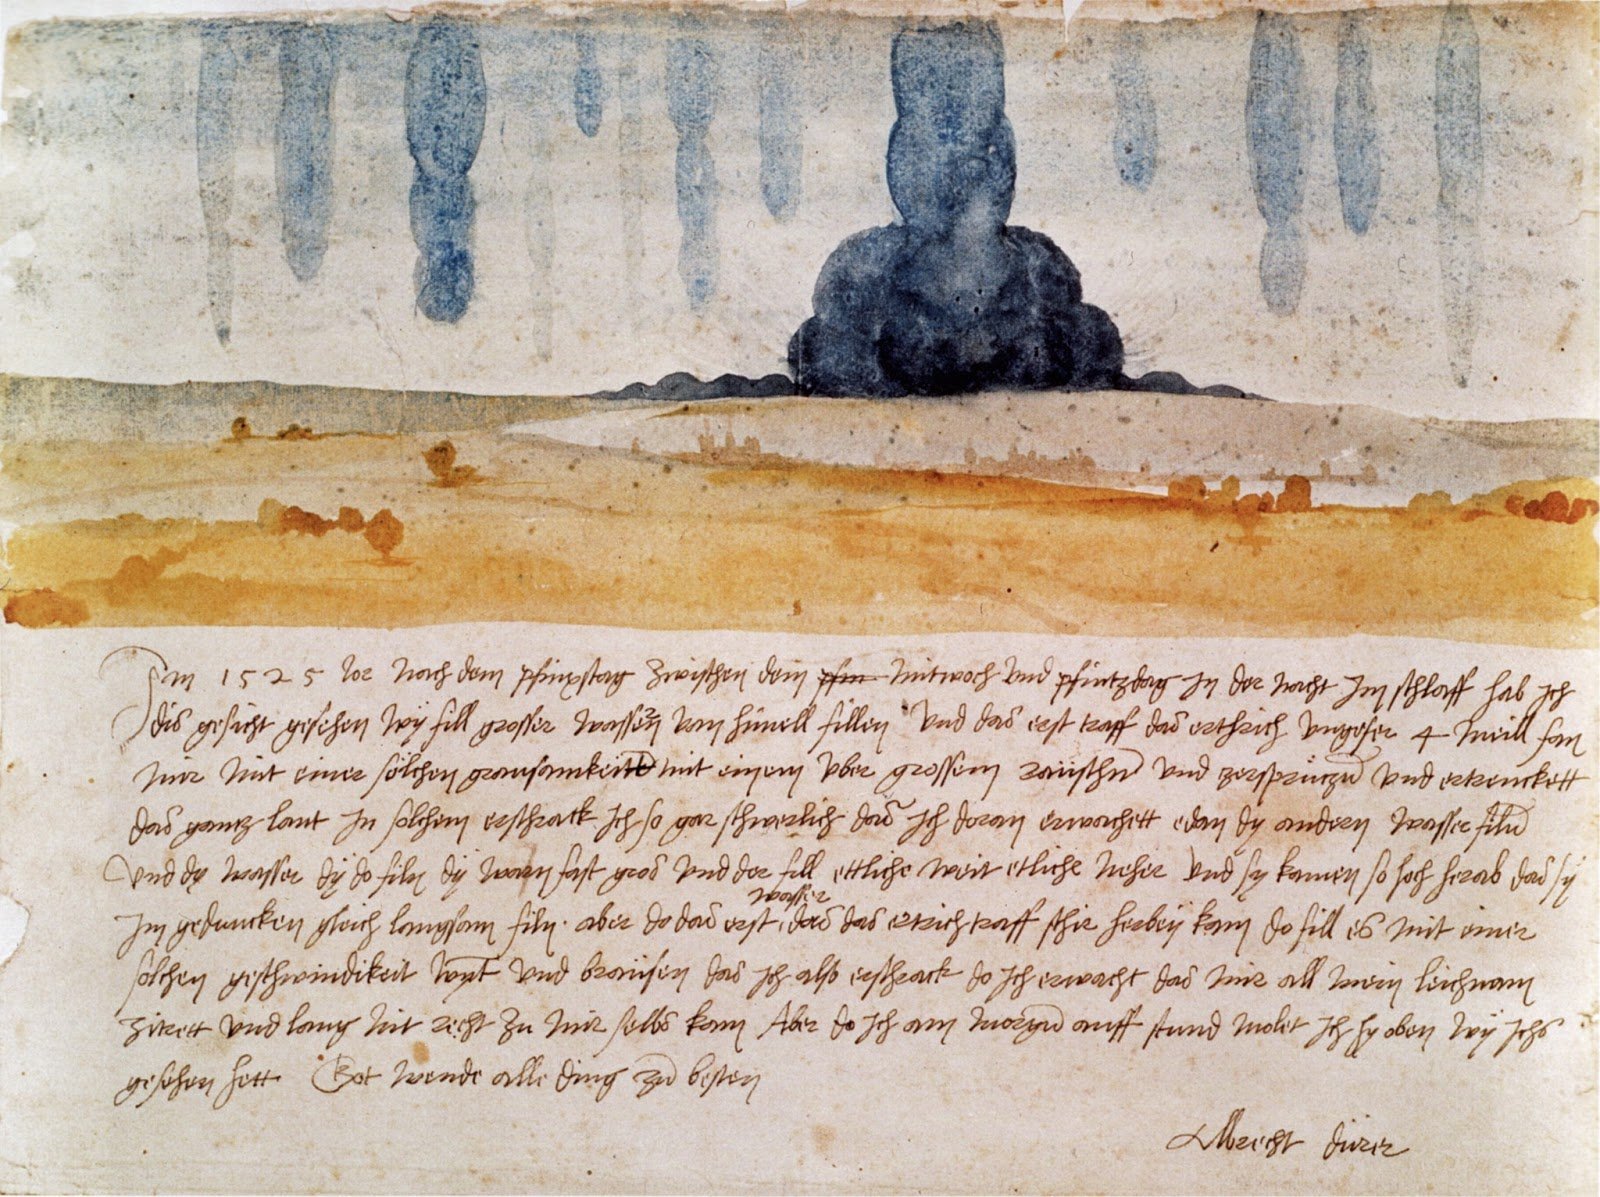 Jm 1525 Jor nach dem pfinxstag zwischen dem pfin mitwoch und pfintzdag in der nacht Jm schlaff hab ich
dis gesicht gesehen wy fill grosser wasser van himell fillen Vnd das erst traff das erthrich vngefer 4 meill fan
mir mit einer solchen grausamkeitt mit einem vber grossem raüschn vnd zersprützn vnd ertrenckett
das gantz lant Jn solchem erschrack ich so gar schwerlich das ich doran erwachett edan dy andern wasser filn
Vnd dy wasser dy do filn dy warn fast gros vnd der fill ettliche weit etliche neher vnd sy kamen so hoch herab das sy
Jm geduncken gleich langsam filn. aber do das erst wasser das das ertrich traff schir herbey kam do fill es mit einer
solchen geschwindikeit wynt vnd braüsen das ich also erschrack do ich erwacht das mir all mein leichnam
zitrett vnd lang nit recht zu mir selbs kam Aber do ich am morgn auff stund molet ich hy oben wy ichs
gesehen hett Got wende alle ding zu besten
Albrecht dürer